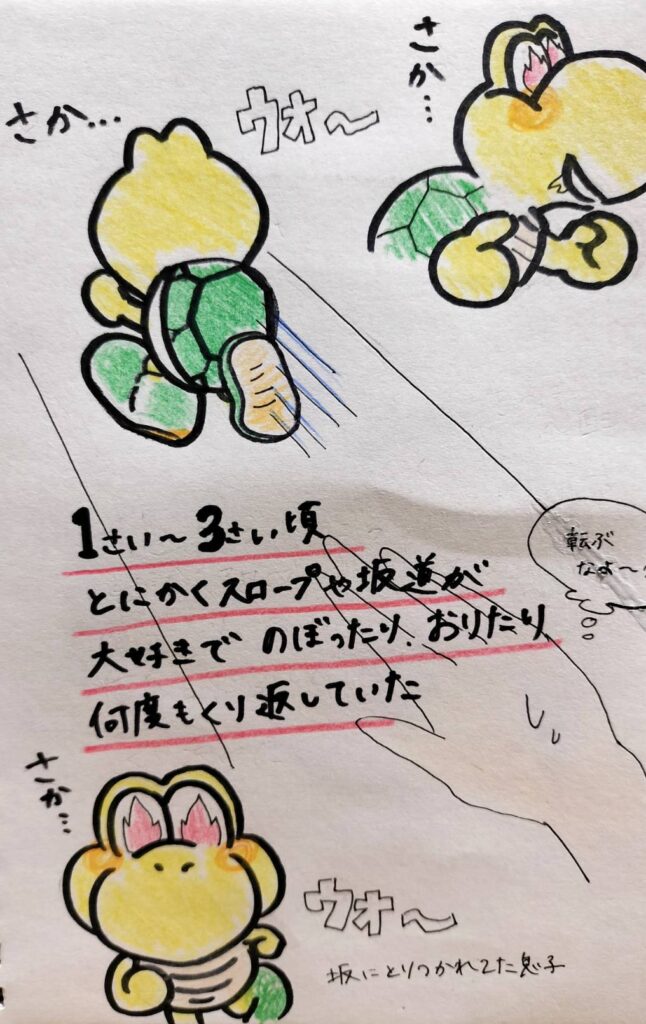 さか…
ウォ〜
さか…
1さい〜3さい頃
とにかくスロープや坂道が
大好きで のぼったり、おりたり
何度もくり返していた
転ぶ
なよ〜
さか…
ウォ〜
坂にとりつかれてた息子